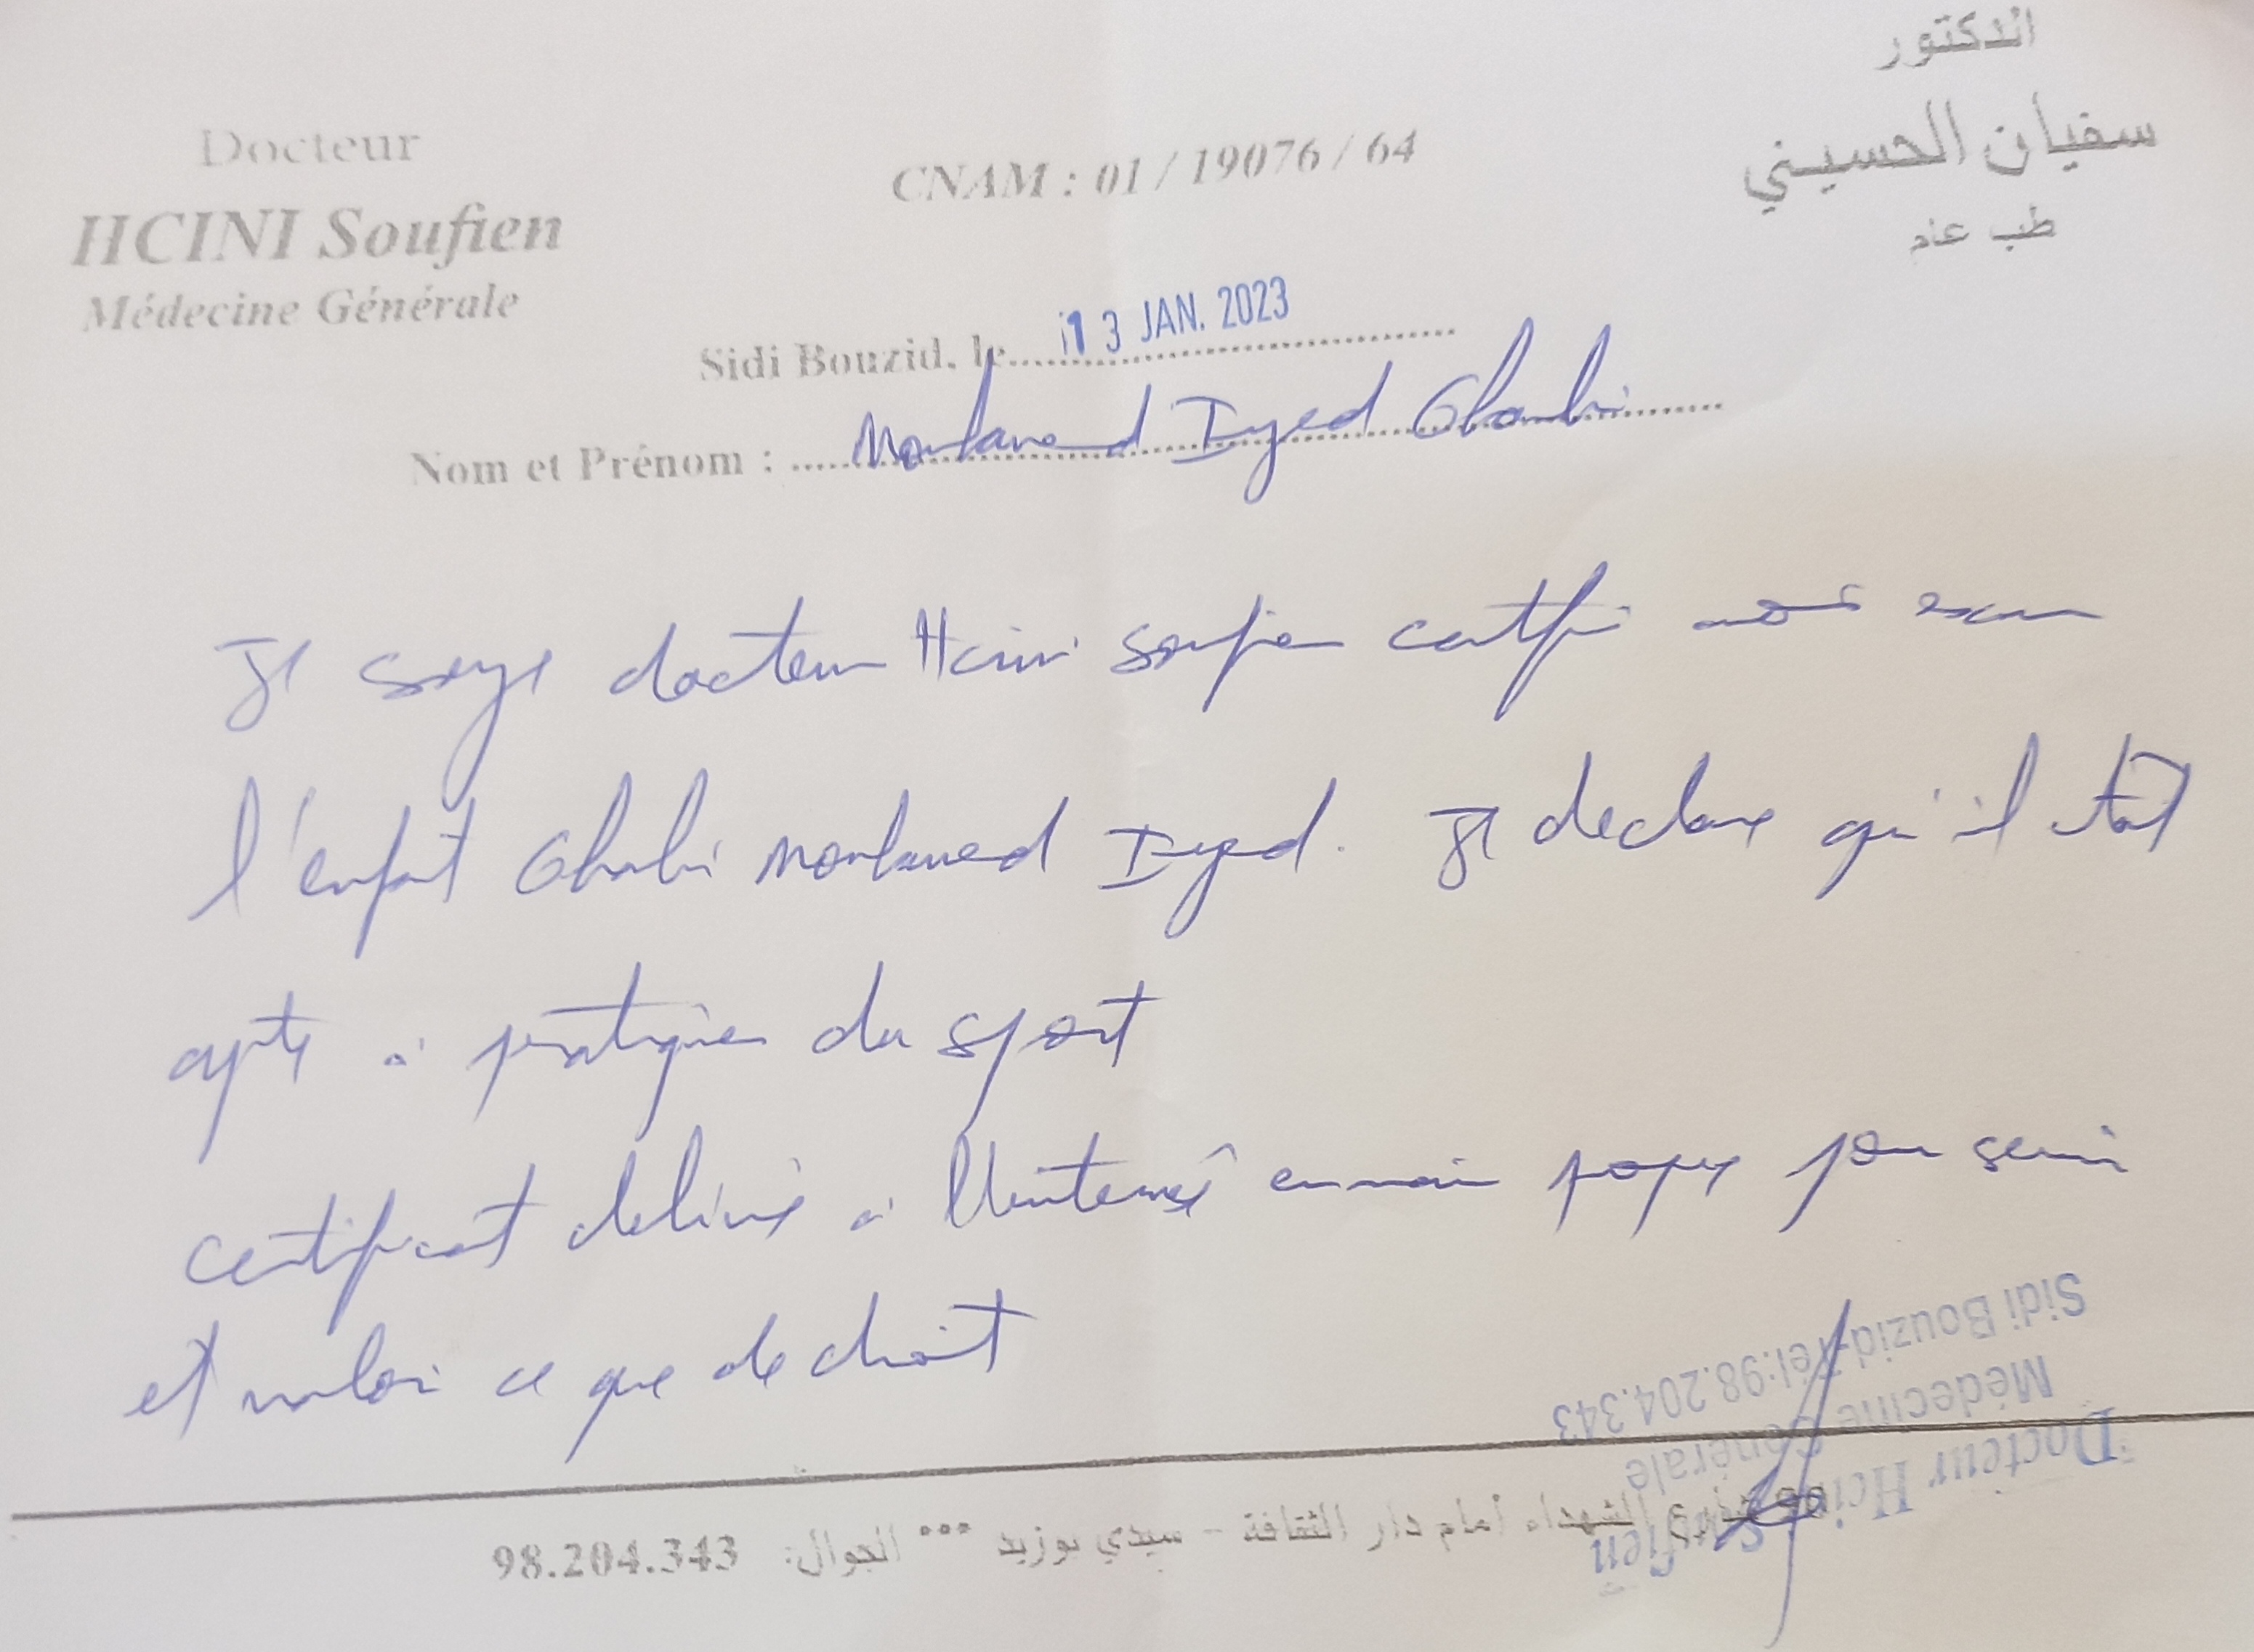 Docteur
HCINI Soufien
Médecine Générale
CNAM : 01 / 19076 / 64
الدكتور
سفيان الحسيني
طب عام
Sidi Bouzid, le 13 JAN. 2023
Nom et Prénom : Mouhamed Iyed Ghabi
Je docteur Hcini Soufien certifie avoir
l'enfant Ghabi Mouhamed Iyed. Je declare qu'il
apte à pratiquer du sport
certificat delivré à en main propre pour servir
et valoir ce que de droit
Docteur Hcini Soufien
Médecine Générale
Sidi Bouzid-Tél:98.204.343
الشهداء أمام دار الثقافة - سيدي بوزيد *** الجوال: 98.204.343